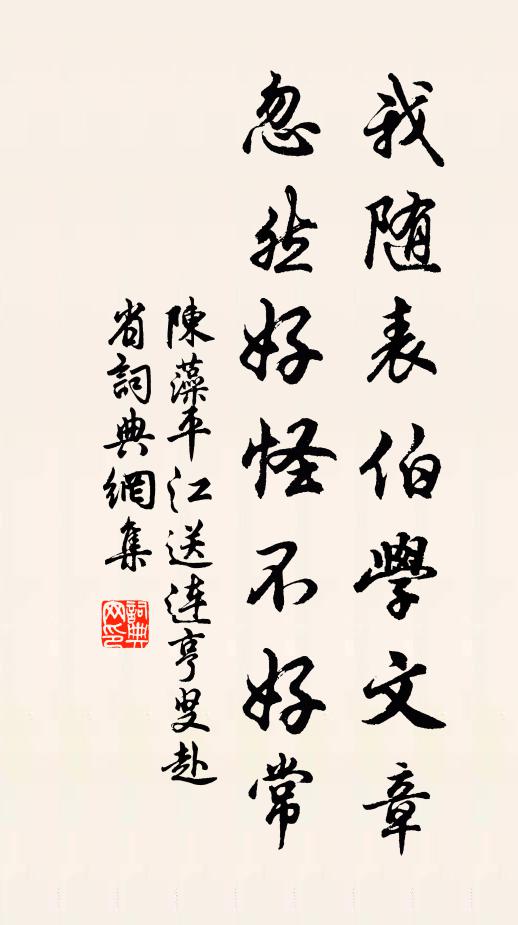 我随表伯學文章
忽然好怪不好常
陳藻平江送連亨叟赴
省詞典網集
詞典
网印